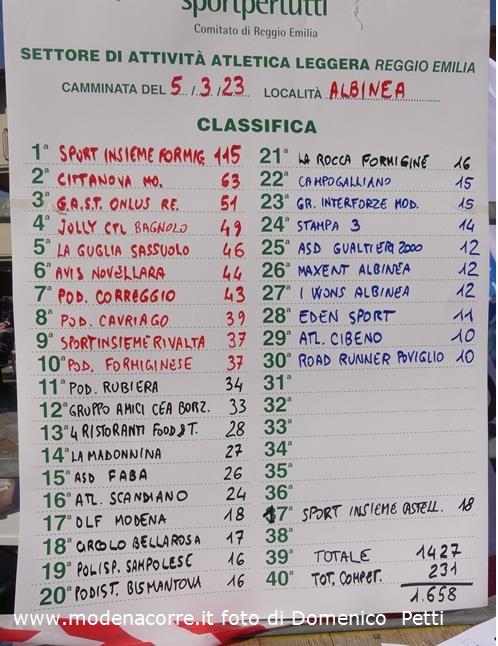 sportpertutti
Comitato di Reggio Emilia
SETTORE DI ATTIVITÀ ATLETICA LEGGERA REGGIO EMILIA
CAMMINATA DEL 5 / 3 / 23 LOCALITÀ ALBINEA
CLASSIFICA
1ª SPORT INSIEME FORMIG. 115
2ª CITTANOVA MO. 63
3ª G.A.S.T. ONLUS RE. 51
4ª JOLLY CTL BAGNOLO 49
5ª LA GUGLIA SASSUOLO 46
6ª AVIS NOVELLARA 44
7ª POD. CORREGGIO 43
8ª POD. CAVRIAGO 39
9ª SPORTINSIEME RIVALTA 37
10ª POD. FORMIGINESE 37
11ª POD. RUBIERA 34
12ª GRUPPO AMICI CEA BORZ. 33
13ª 4 RISTORANTI FOOD & T. 28
14ª LA MADONNINA 27
15ª ASD FABA 26
16ª ATL. SCANDIANO 24
17ª DLF MODENA 18
18ª CIRCOLO BELLAROSA 17
19ª POLISP. SAMPOLESE 16
20ª PODIST. BISMANTOVA 16
21ª LA ROCCA FORMIGINE 16
22ª CAMPOGALLIANO 15
23ª GR. INTERFORZE MOD. 15
24ª STAMPA 3 14
25ª ASD GUALTIERI 2000 12
26ª MAXENT ALBINEA 12
27ª I WONS ALBINEA 12
28ª EDEN SPORT 11
29ª ATL. CIBENO 10
30ª ROAD RUNNER POVIGLIO 10
31ª
32ª
33ª
34ª
35ª
36ª
17ª SPORT INSIEME CASTELL. 18
38ª
39ª TOTALE 1427
40ª TOT. COMPET. 231
1.658
www.modenacorre.it foto di Domenico Petti